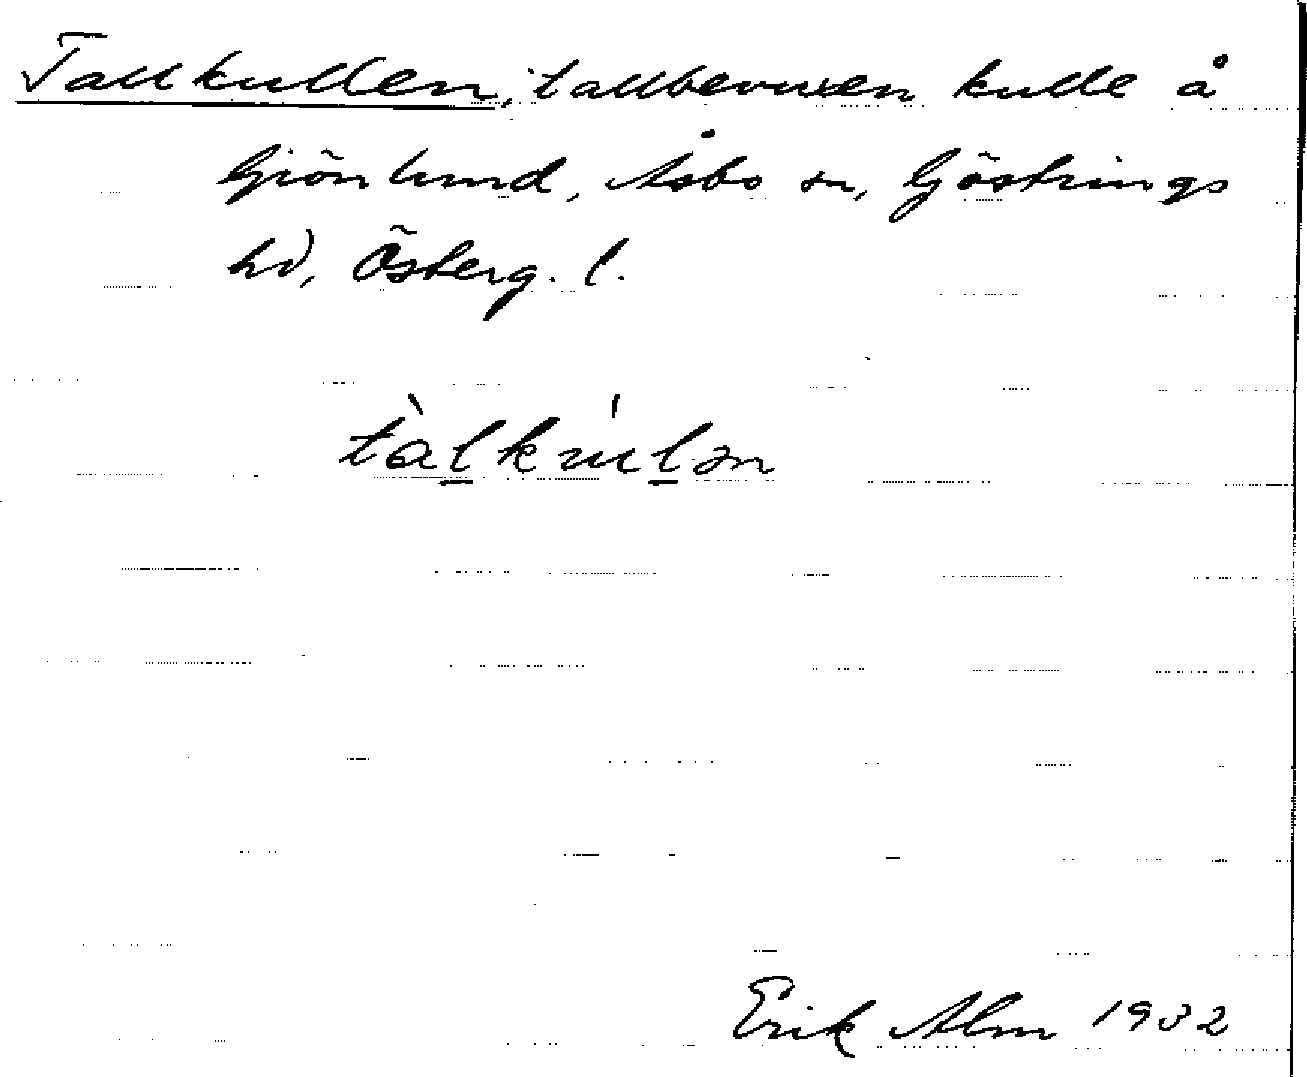 Tallkullen, tallbevuxen kulle å
Grönlund, Åsbo sn, Göstrings
hd, Österg. l.
tàlkúlən
Erik Alm 1932